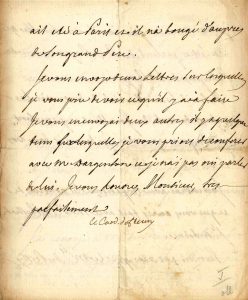 ait été à Paris et il na bougé d'aupres
de son grand Pere.
Je vous envoye deux Lettres sur lesquelles
je vous prie de voir ce qu'il y a à faire
Je vous en envoyai deux autres il y a quelque
tems sur lesquelles je vous priois de conferer
avec Mr Dargenson et je n'ai pas oui parler
de lui. Je vous honore, Monsieur, tres
parfaitement
le Card. de fleury